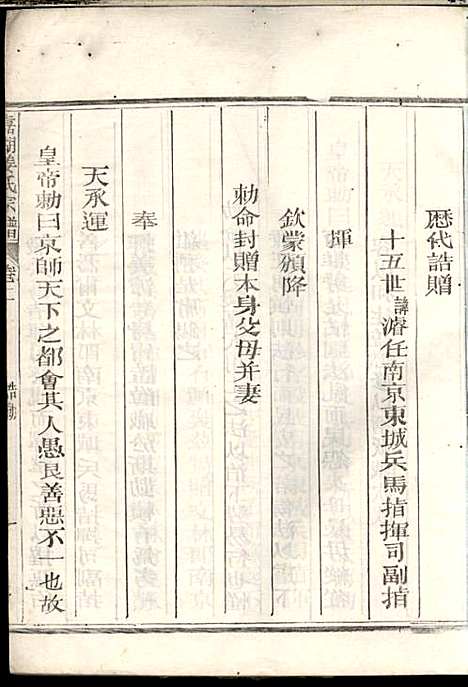 歷代誥贈
十五世諱濬任南京東城兵馬指揮司副指
揮
欽蒙頒降
勑命封贈本身父母并妻
奉
天承運
皇帝勅曰京師天下之都會其人愚良善惡不一也故
氏宗譜 卷二